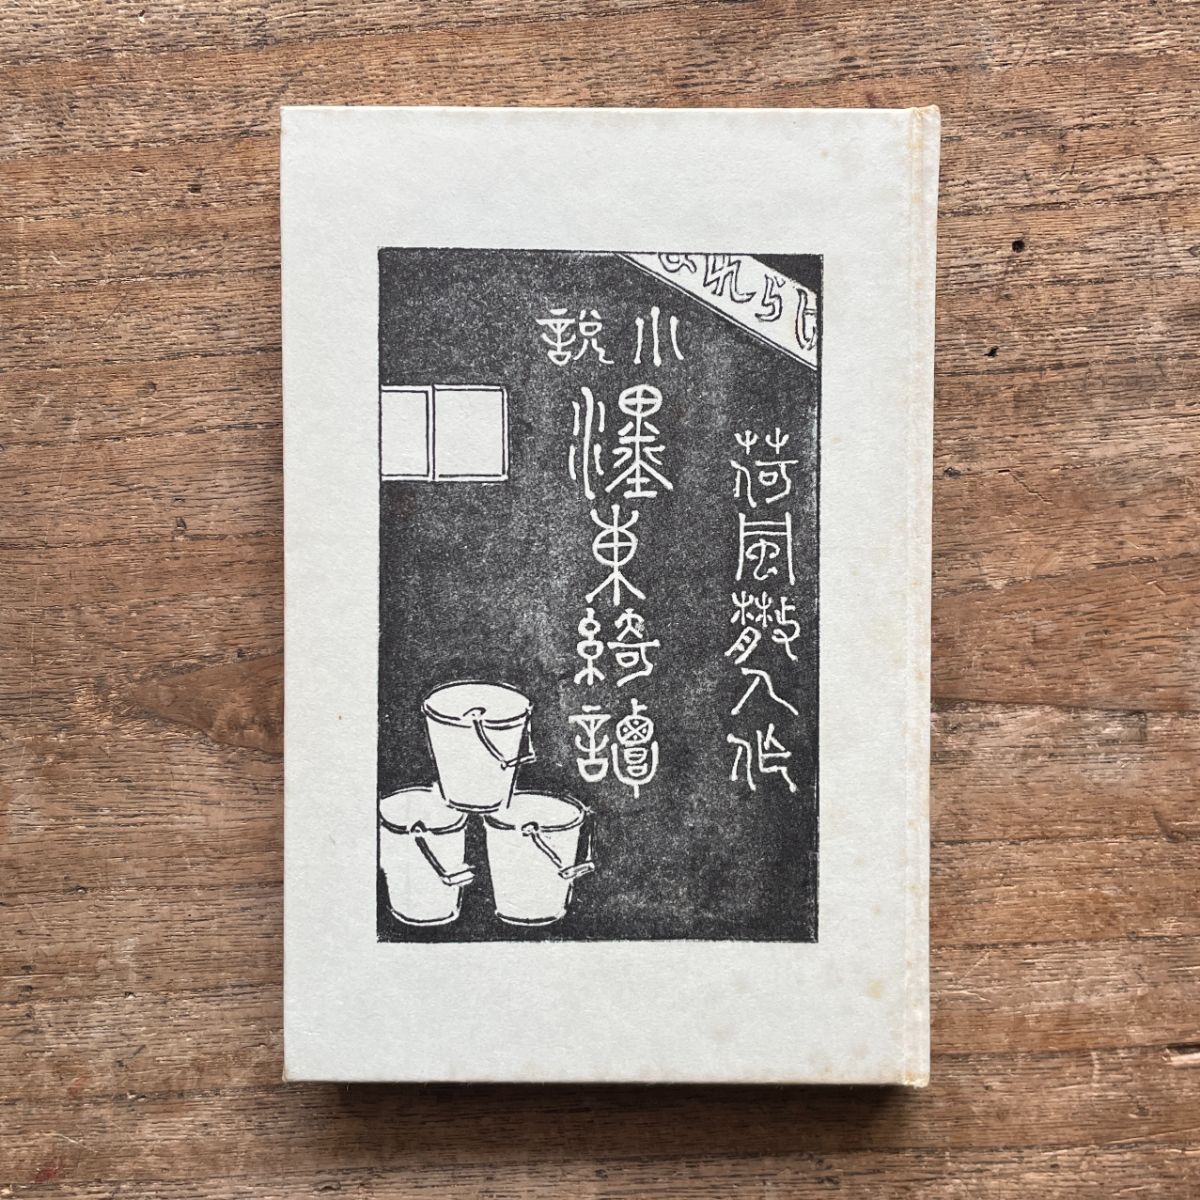 けられま
荷風散人作
小說
濹東綺譚